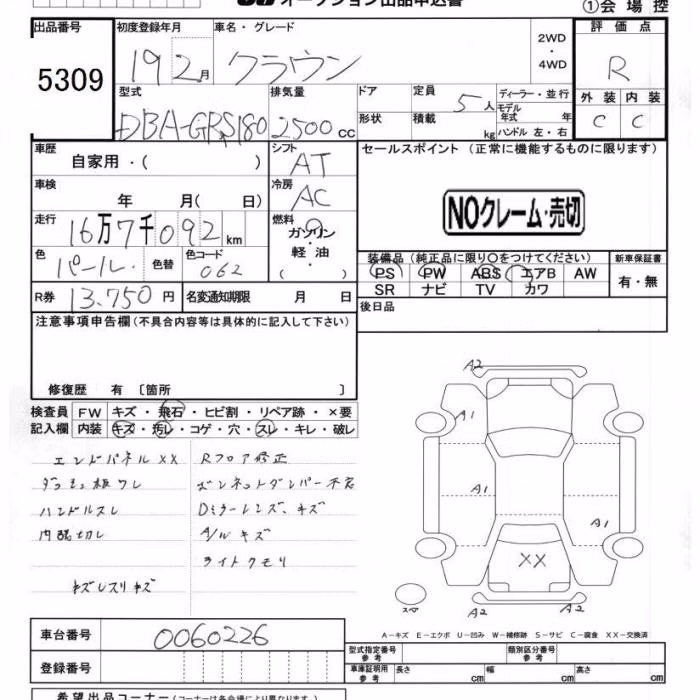 オークション出品申込書 ①会場控
出品番号 初度登録年月 車名・グレード 評価点
5309 19 2月 クラウン 2WD ・ 4WD R
型式 排気量 ドア 定員 5人 ディーラー・並行 外装 内装
DBA-GRS180 2500cc 形状 積載 kg モデル年式 年 ハンドル 左・右 C C
車歴 自家用・( ) シフト AT セールスポイント (正常に機能するものに限ります)
車検 年 月( 日) 冷房 AC
NOクレーム・売切
走行 16万7千092km 燃料 ガソリン・軽油・( )
色 パール・ 色替 色コード 062
装備品(純正品に限り○をつけてください) 新車保証書
PS PW ABS エアB AW 有・無
SR ナビ TV カワ
R券 13,750円 名変通知期限 月 日 後日品
注意事項申告欄(不具合内容等は具体的に記入して下さい)
修復歴 有〔箇所 〕
検査員 FW キズ・飛石・ヒビ割・リペア跡・×要
記入欄 内装 キズ・汚レ・コゲ・穴・スレ・キレ・破レ
エンドパネルXX Rフロア修正
ダッシュ板ワレ ボンネットダンパー不良
ハンドルスレ Dミラーレンズ、キズ
内張切レ A/Wキズ
ライトクモリ
キズレスリキズ
A2
A1
A1
A1
XX
スペア
A2 A2
A-キズ E-エクボ U-凹み W-補修跡 S-サビ C-腐食 XX-交換済
車台番号 0060226
型式指定番号 参考 類別区分番号 参考
登録番号
車庫証明用 参考 長さ cm 幅 cm 高さ cm
希望出品コーナー(コーナーは各会場により異なります)